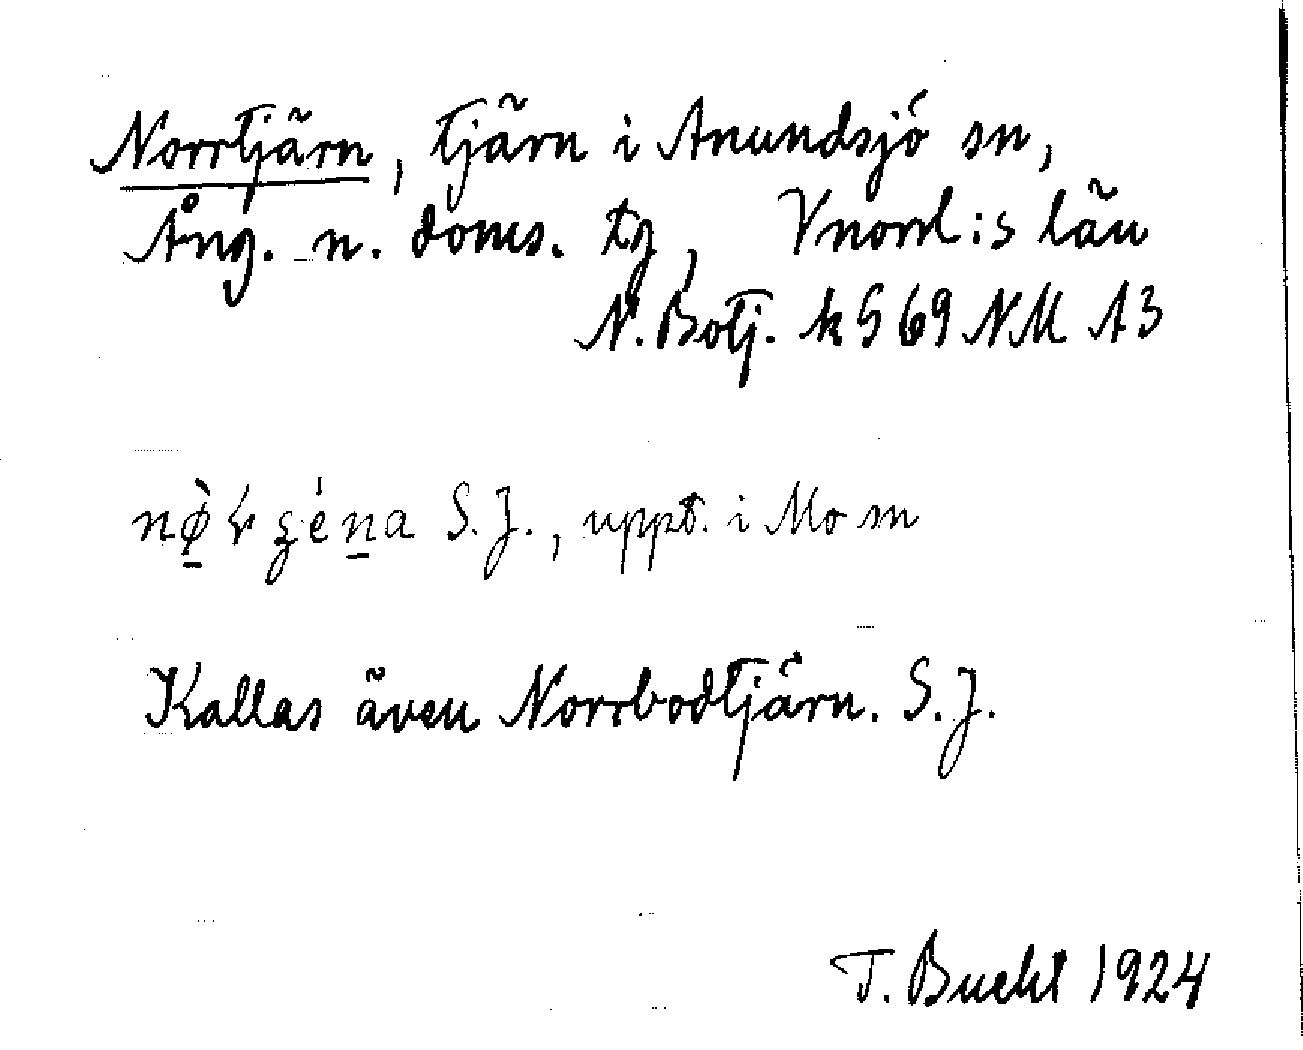 Norrtjärn, tjärn i Anundsjö sn,
Ång. n. doms. tg, Vnorrl:s län
N. Botj. k S 69 NM A3
S. J., uppt. i Mo sn
Kallas även Norrbodtjärn. S. J.
T. Bucht 1924